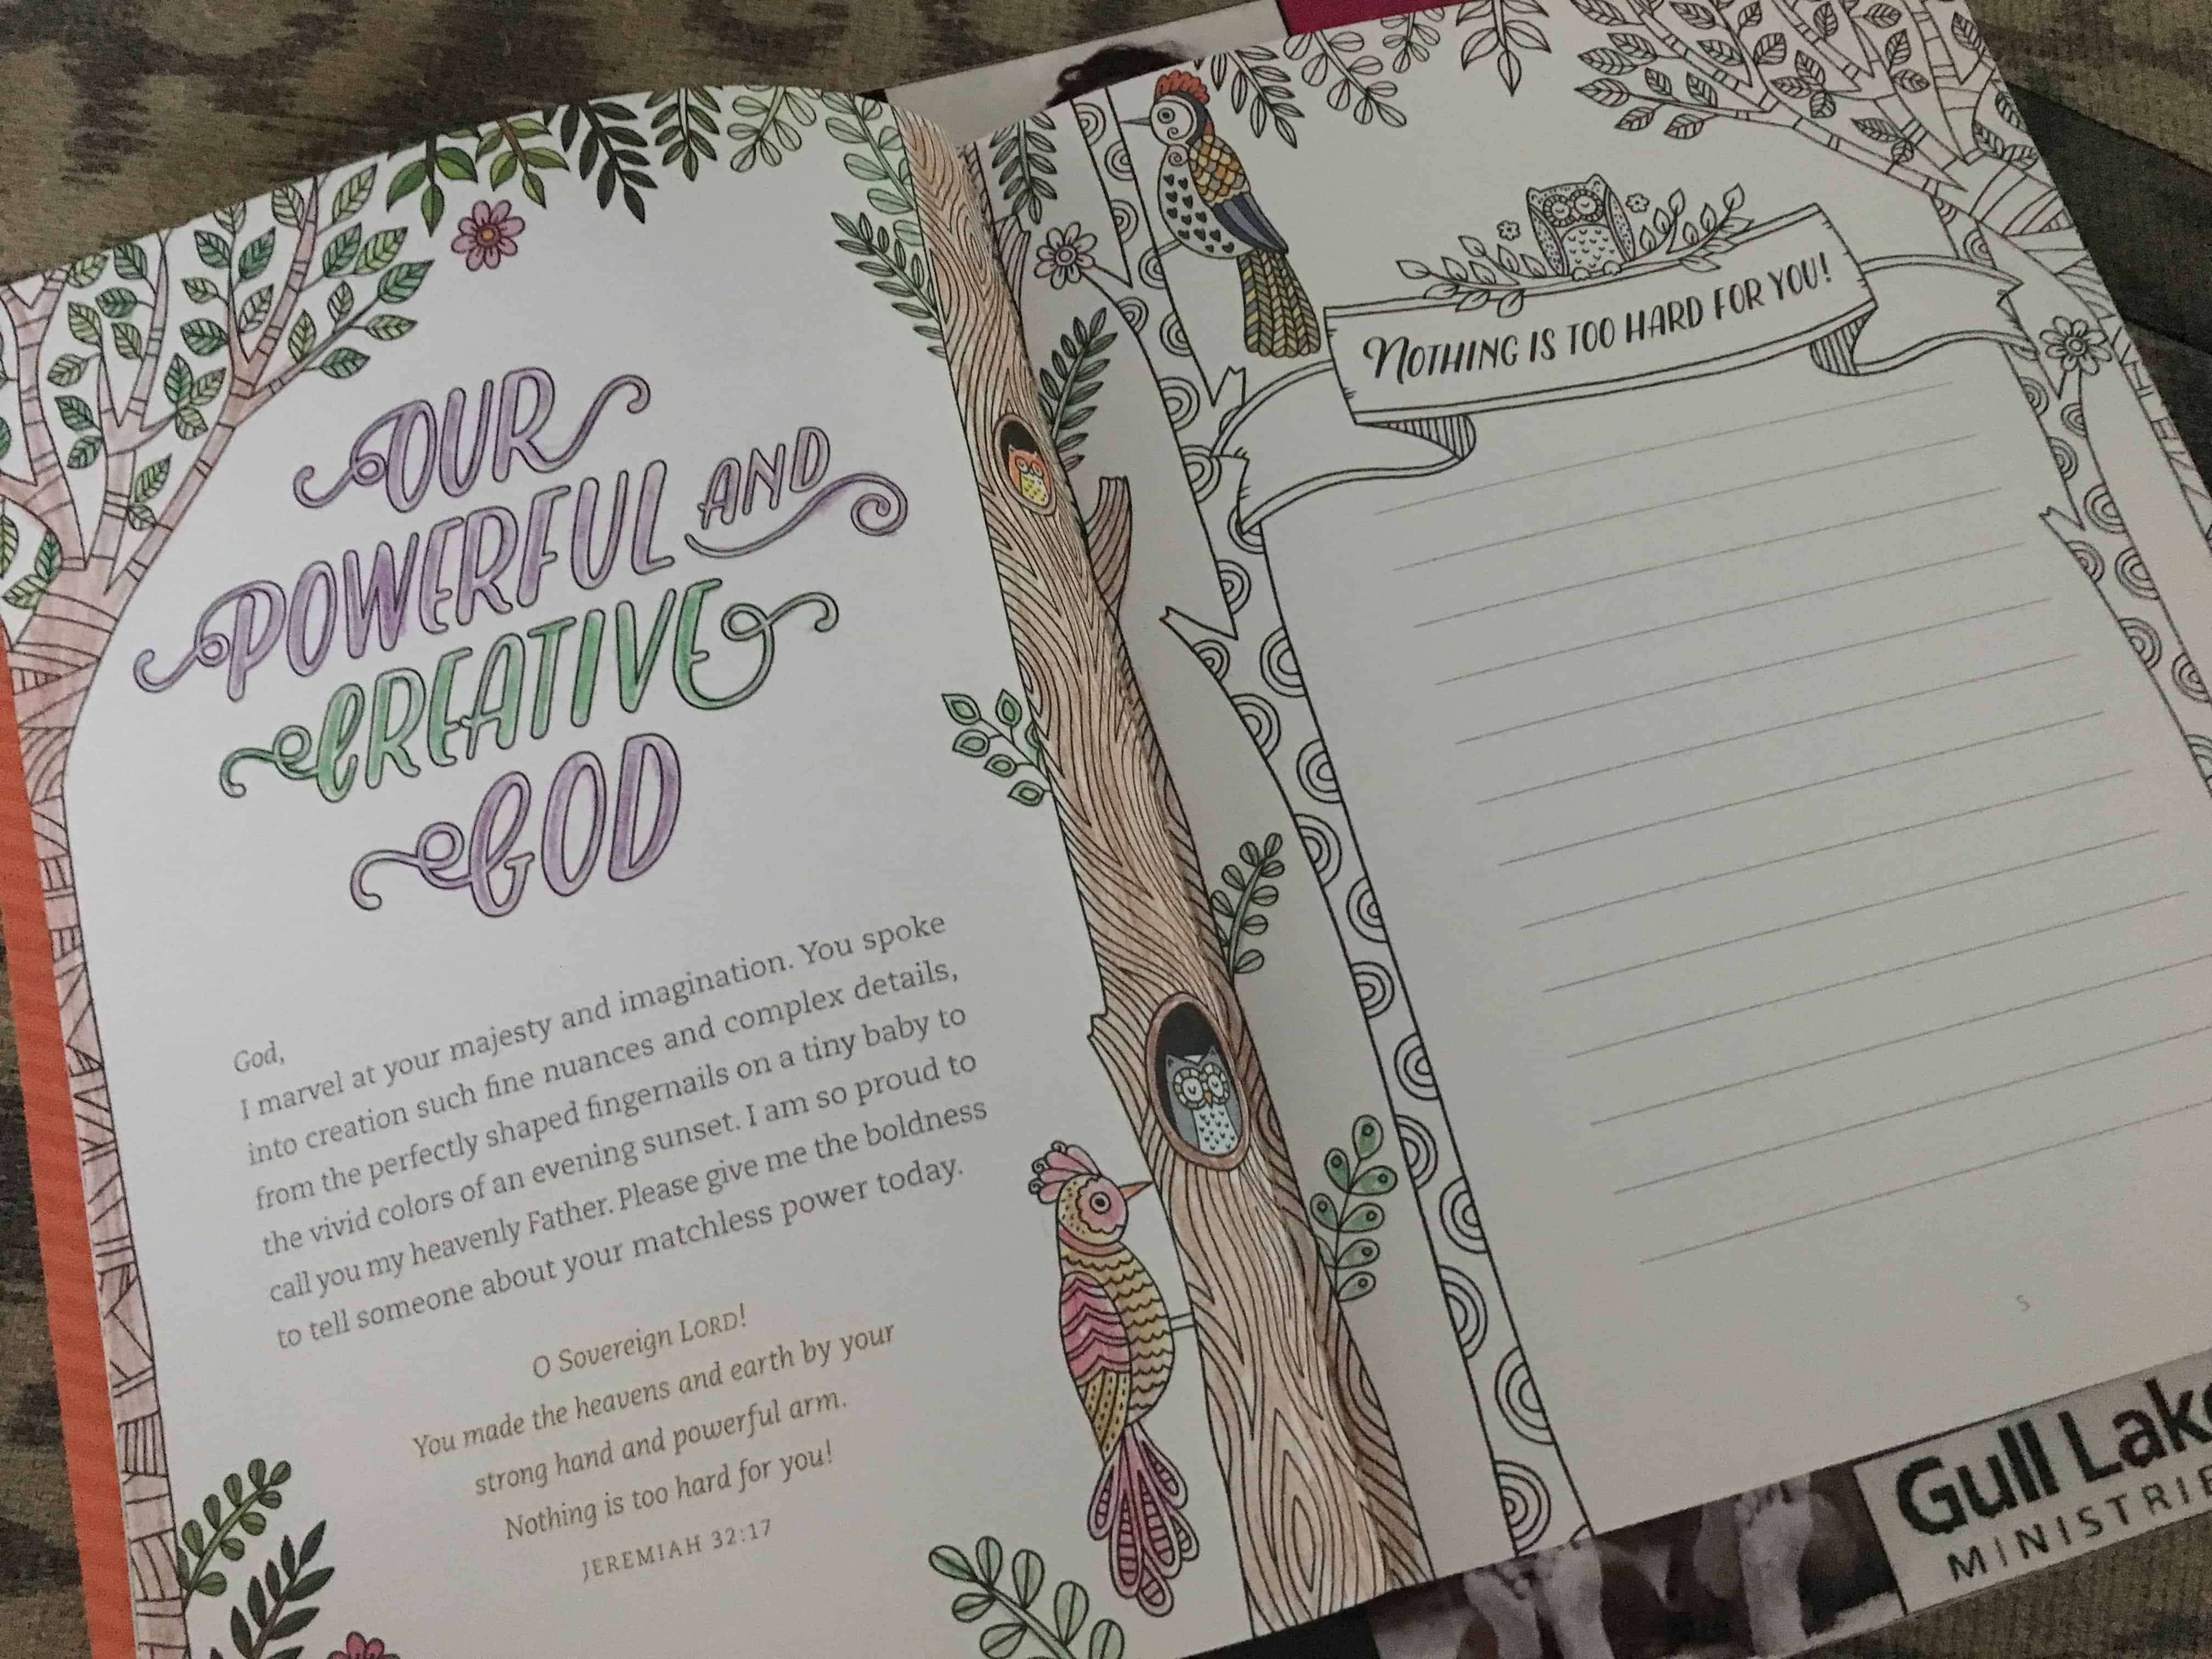 OUR
POWERFUL AND
CREATIVE
GOD
God,
I marvel at your majesty and imagination. You spoke
into creation such fine nuances and complex details,
from the perfectly shaped fingernails on a tiny baby to
the vivid colors of an evening sunset. I am so proud to
call you my heavenly Father. Please give me the boldness
to tell someone about your matchless power today.
O Sovereign LORD!
You made the heavens and earth by your
strong hand and powerful arm.
Nothing is too hard for you!
JEREMIAH 32:17
NOTHING IS TOO HARD FOR YOU!
5
Gull